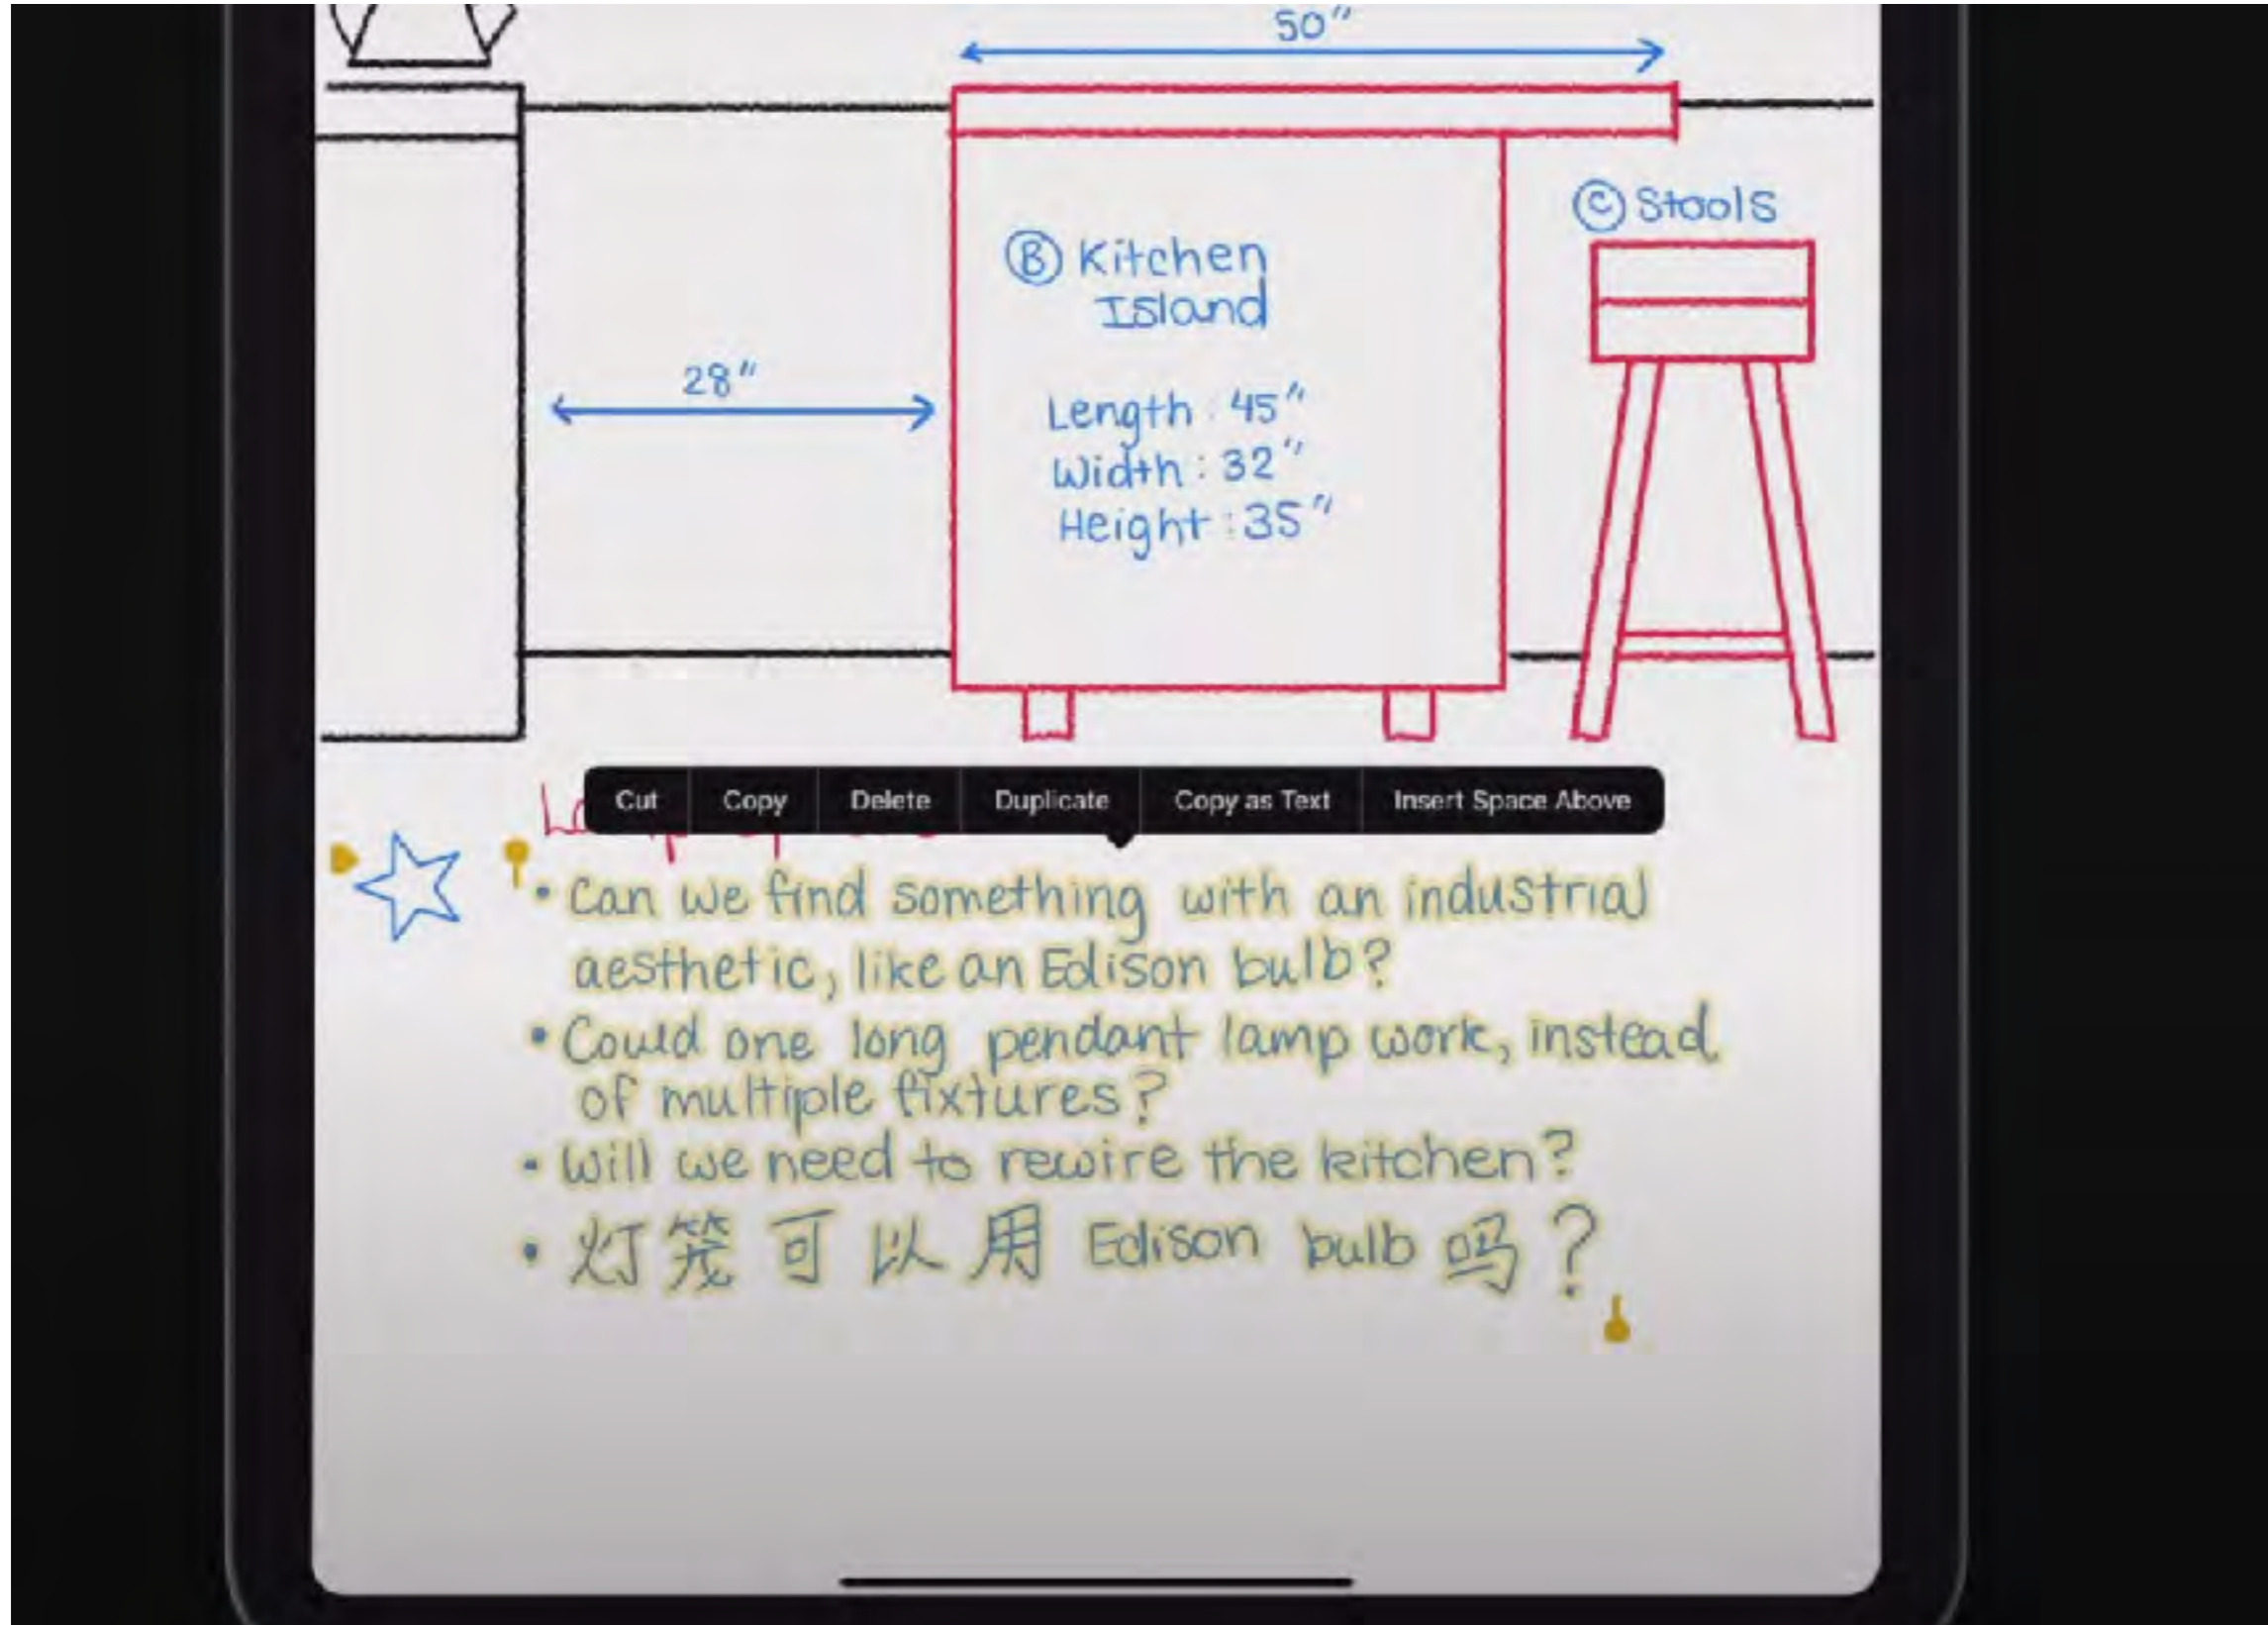 50"
Ⓒ Stools
Ⓑ Kitchen
Island
28"
Length : 45"
Width : 32"
Height : 35"
Cut Copy Delete Duplicate Copy as Text Insert Space Above
• Can we find something with an industrial
aesthetic, like an Edison bulb?
• Could one long pendant lamp work, instead
of multiple fixtures?
• Will we need to rewire the kitchen?
• 灯笼可以用 Edison bulb 吗?